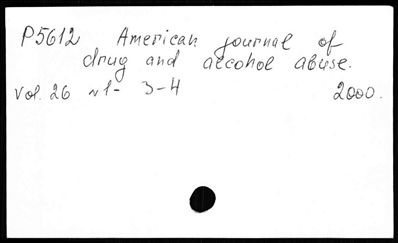 P5612 American journal of
drug and alcohol abuse.
Vol. 26 N1- 3-4 2000.